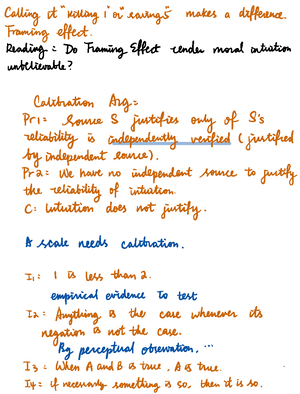 Calling it "killing 1" or "saving 5" makes a difference.
Framing effect.
Reading: Do Framing Effect render moral intuition
unbelievable?
Calibration Arg:
Pr1: Source S justifies only if S's
reliability is independently verified (justified
by independent source).
Pr2: We have no independent source to justify
the reliability of intuition.
C: Intuition does not justify.
A scale needs calibration.
I1: 1 is less than 2.
empirical evidence to test
I2: Anything is the case whenever its
negation is not the case.
By perceptual observation, ...
I3: When A and B is true, A is true.
I4: if necessarily something is so, then it is so.